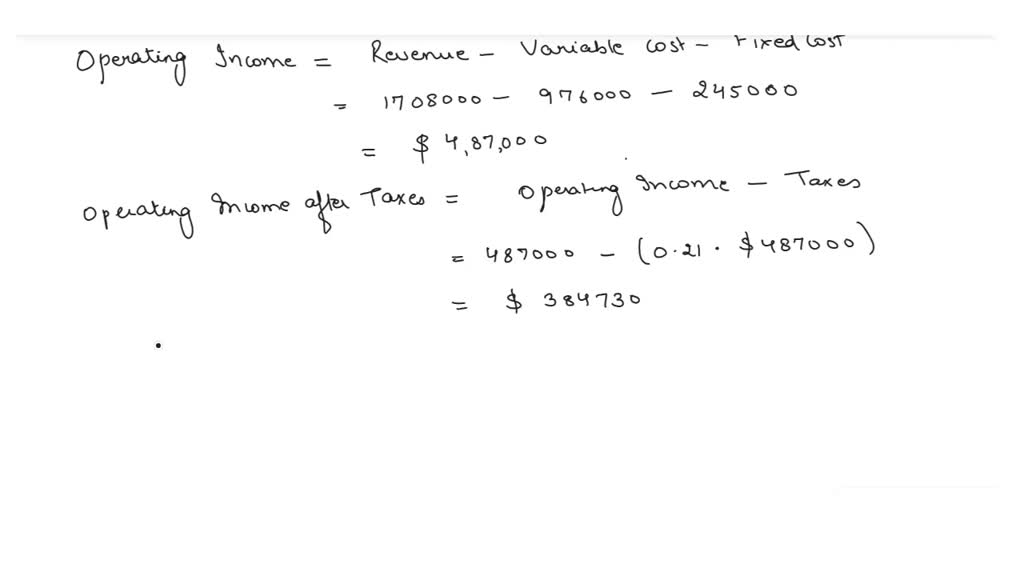 Operating Income = Revenue - Variable cost - Fixed cost
= 1708000 - 976000 - 245000
= $ 4,87,000
Operating Income after Taxes = Operating Income - Taxes
= 487000 - (0.21 . $487000)
= $ 384730